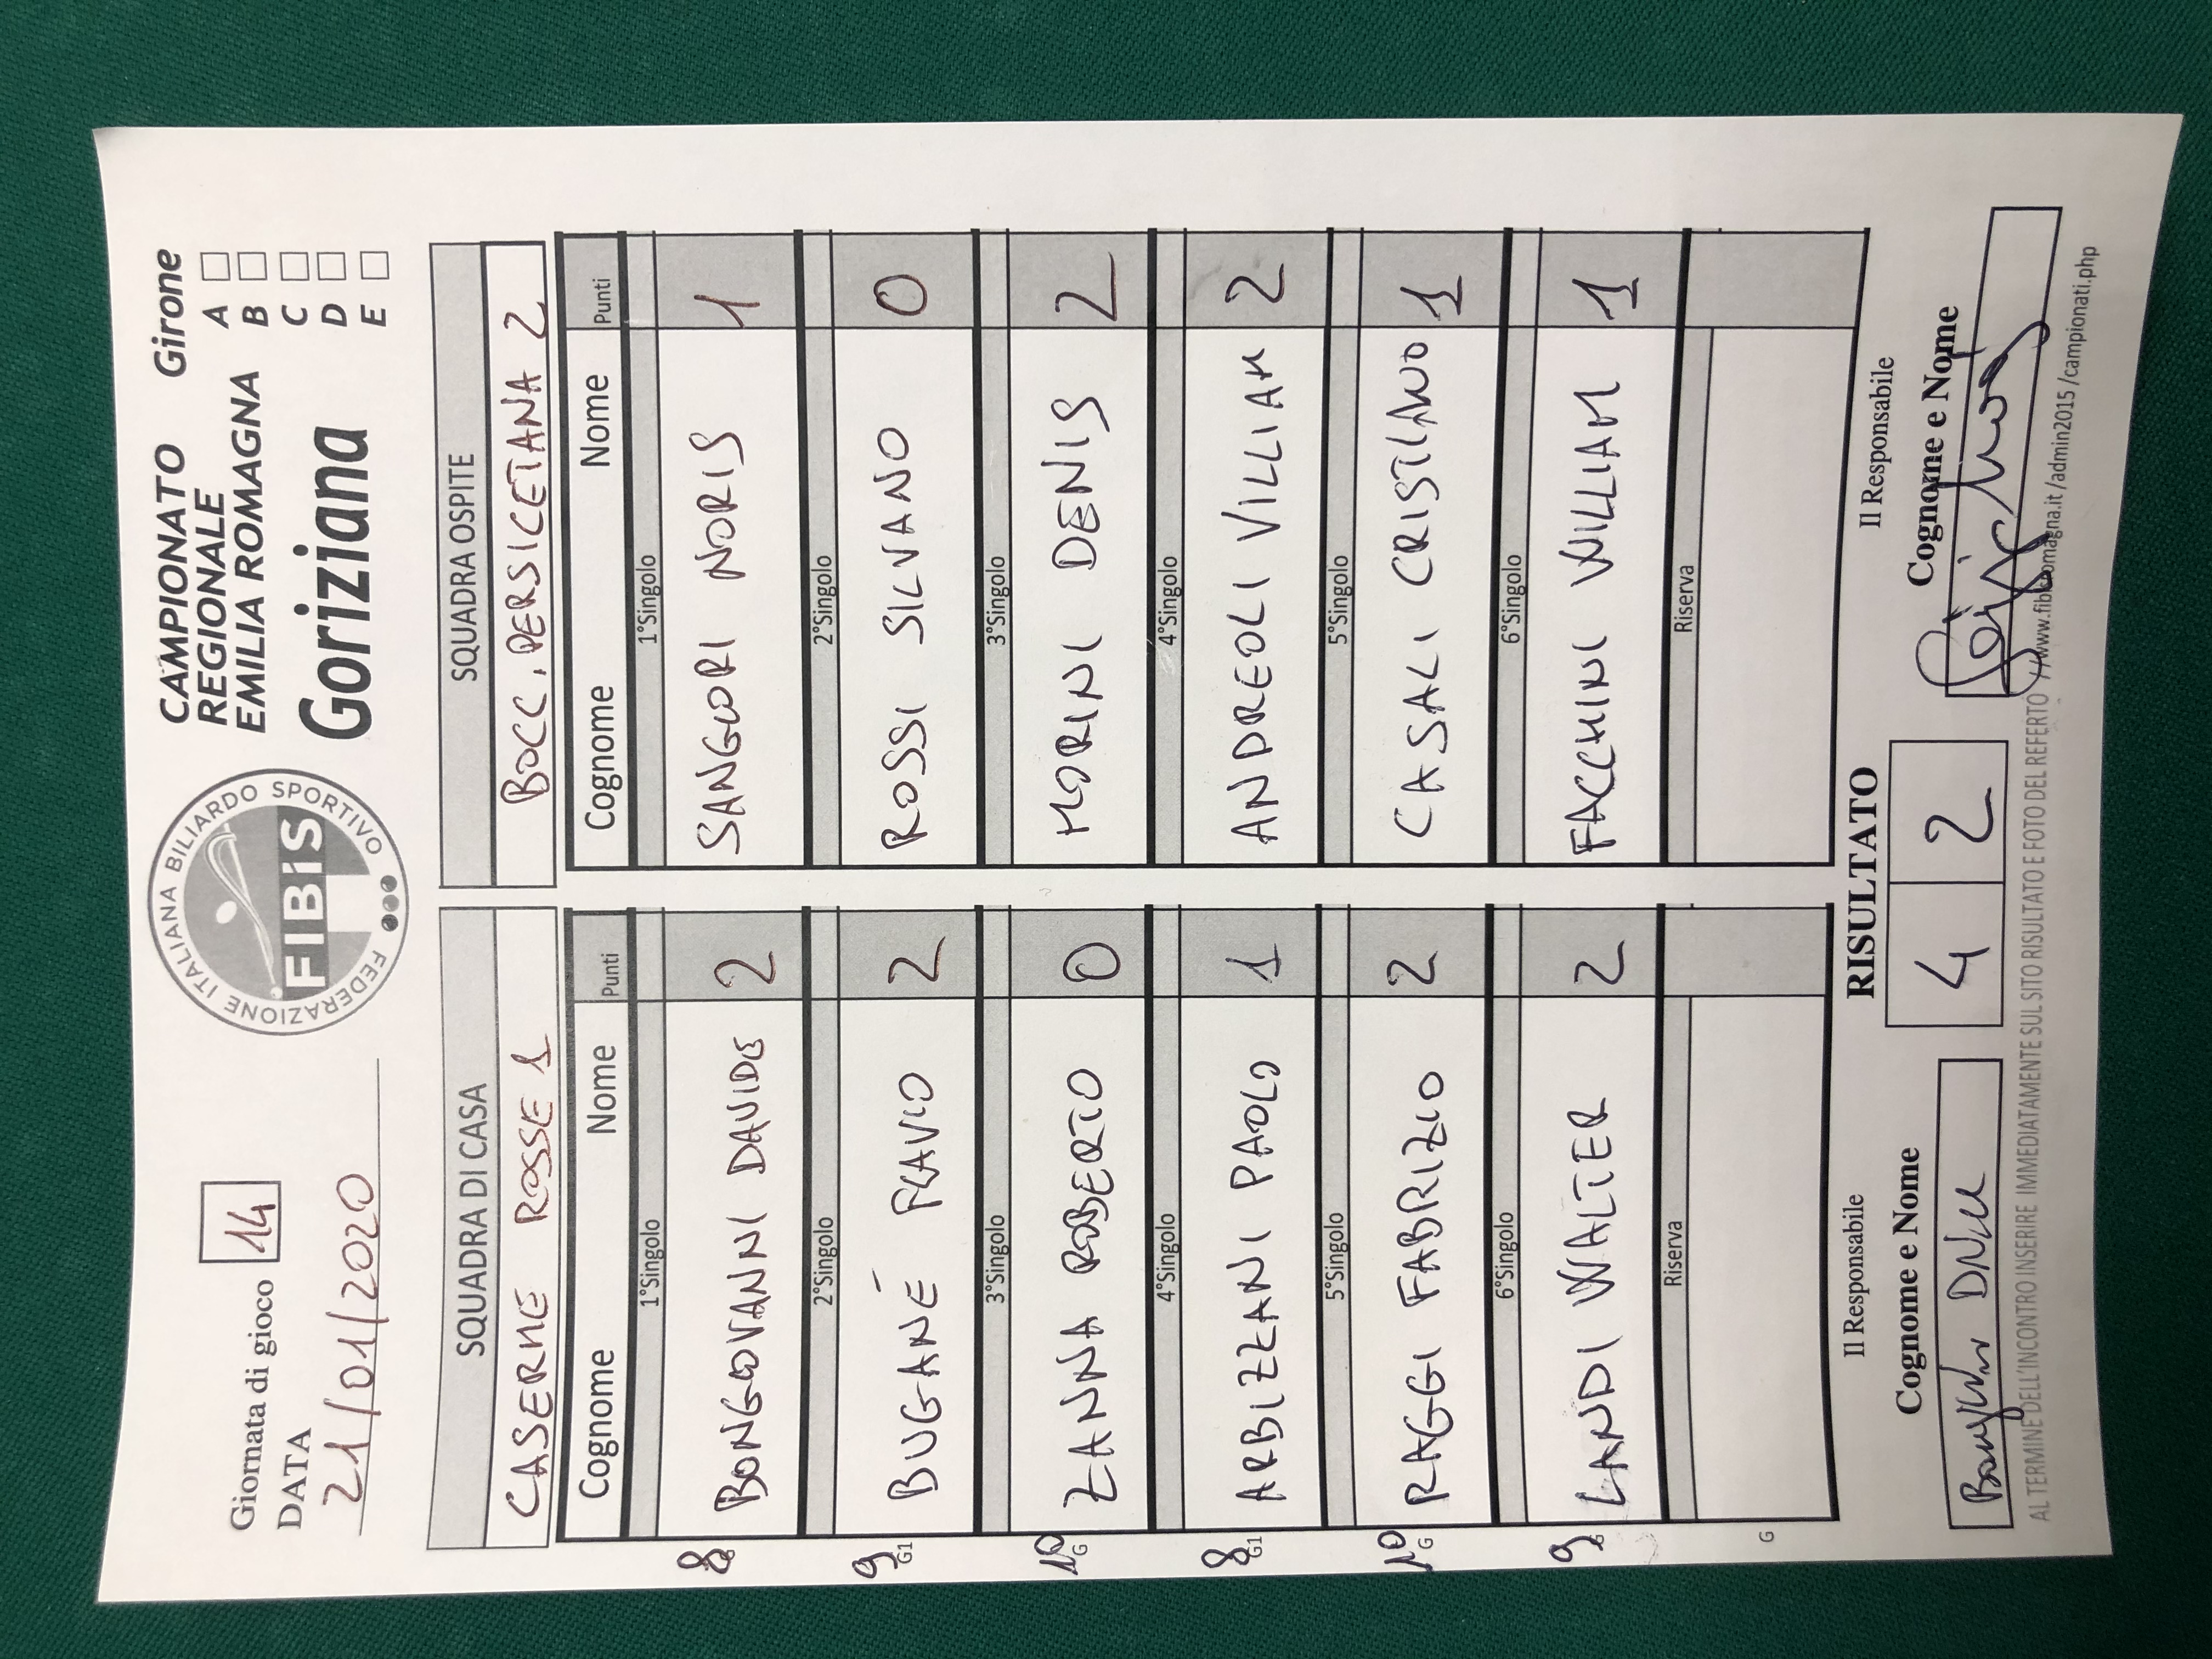 Giornata di gioco 14
DATA
21/01/2020
FEDERAZIONE ITALIANA BILIARDO SPORTIVO
FIBiS
CAMPIONATO
REGIONALE
EMILIA ROMAGNA
Goriziana
Girone
A
B
C
D
E
SQUADRA DI CASA SQUADRA OSPITE
CASERME ROSSE 1 BOCC. PERSICETANA 2
Cognome Nome Punti Cognome Nome Punti
1°Singolo 1°Singolo
8 G BONGIOVANNI DAVIDE 2 SANGIORI NORIS 1
2°Singolo 2°Singolo
9 G1 BUGANÉ FLAVIO 2 ROSSI SILVANO 0
3°Singolo 3°Singolo
10 G ZANNA ROBERTO 0 MORINI DENIS 2
4°Singolo 4°Singolo
8 G1 ARBIZZANI PAOLO 1 ANDREOLI VILLIAM 2
5°Singolo 5°Singolo
10 G RAGGI FABRIZIO 2 CASALI CRISTIANO 1
6°Singolo 6°Singolo
9 G LANDI WALTER 2 FACCHINI WILLIAM 1
Riserva Riserva
G
Il Responsabile RISULTATO Il Responsabile
Cognome e Nome 4 2 Cognome e Nome
AL TERMINE DELL'INCONTRO INSERIRE IMMEDIATAMENTE SUL SITO RISULTATO E FOTO DEL REFERTO //www.fibisromagna.it /admin2015 /campionati.php